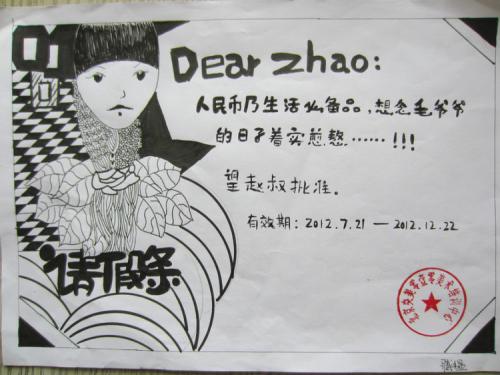 01
Dear zhao:
人民币乃生活必备品,想念毛爷爷
的日子着实煎熬……!!!
望赵叔批准。
有效期:2012.7.21 — 2012.12.22
请假条